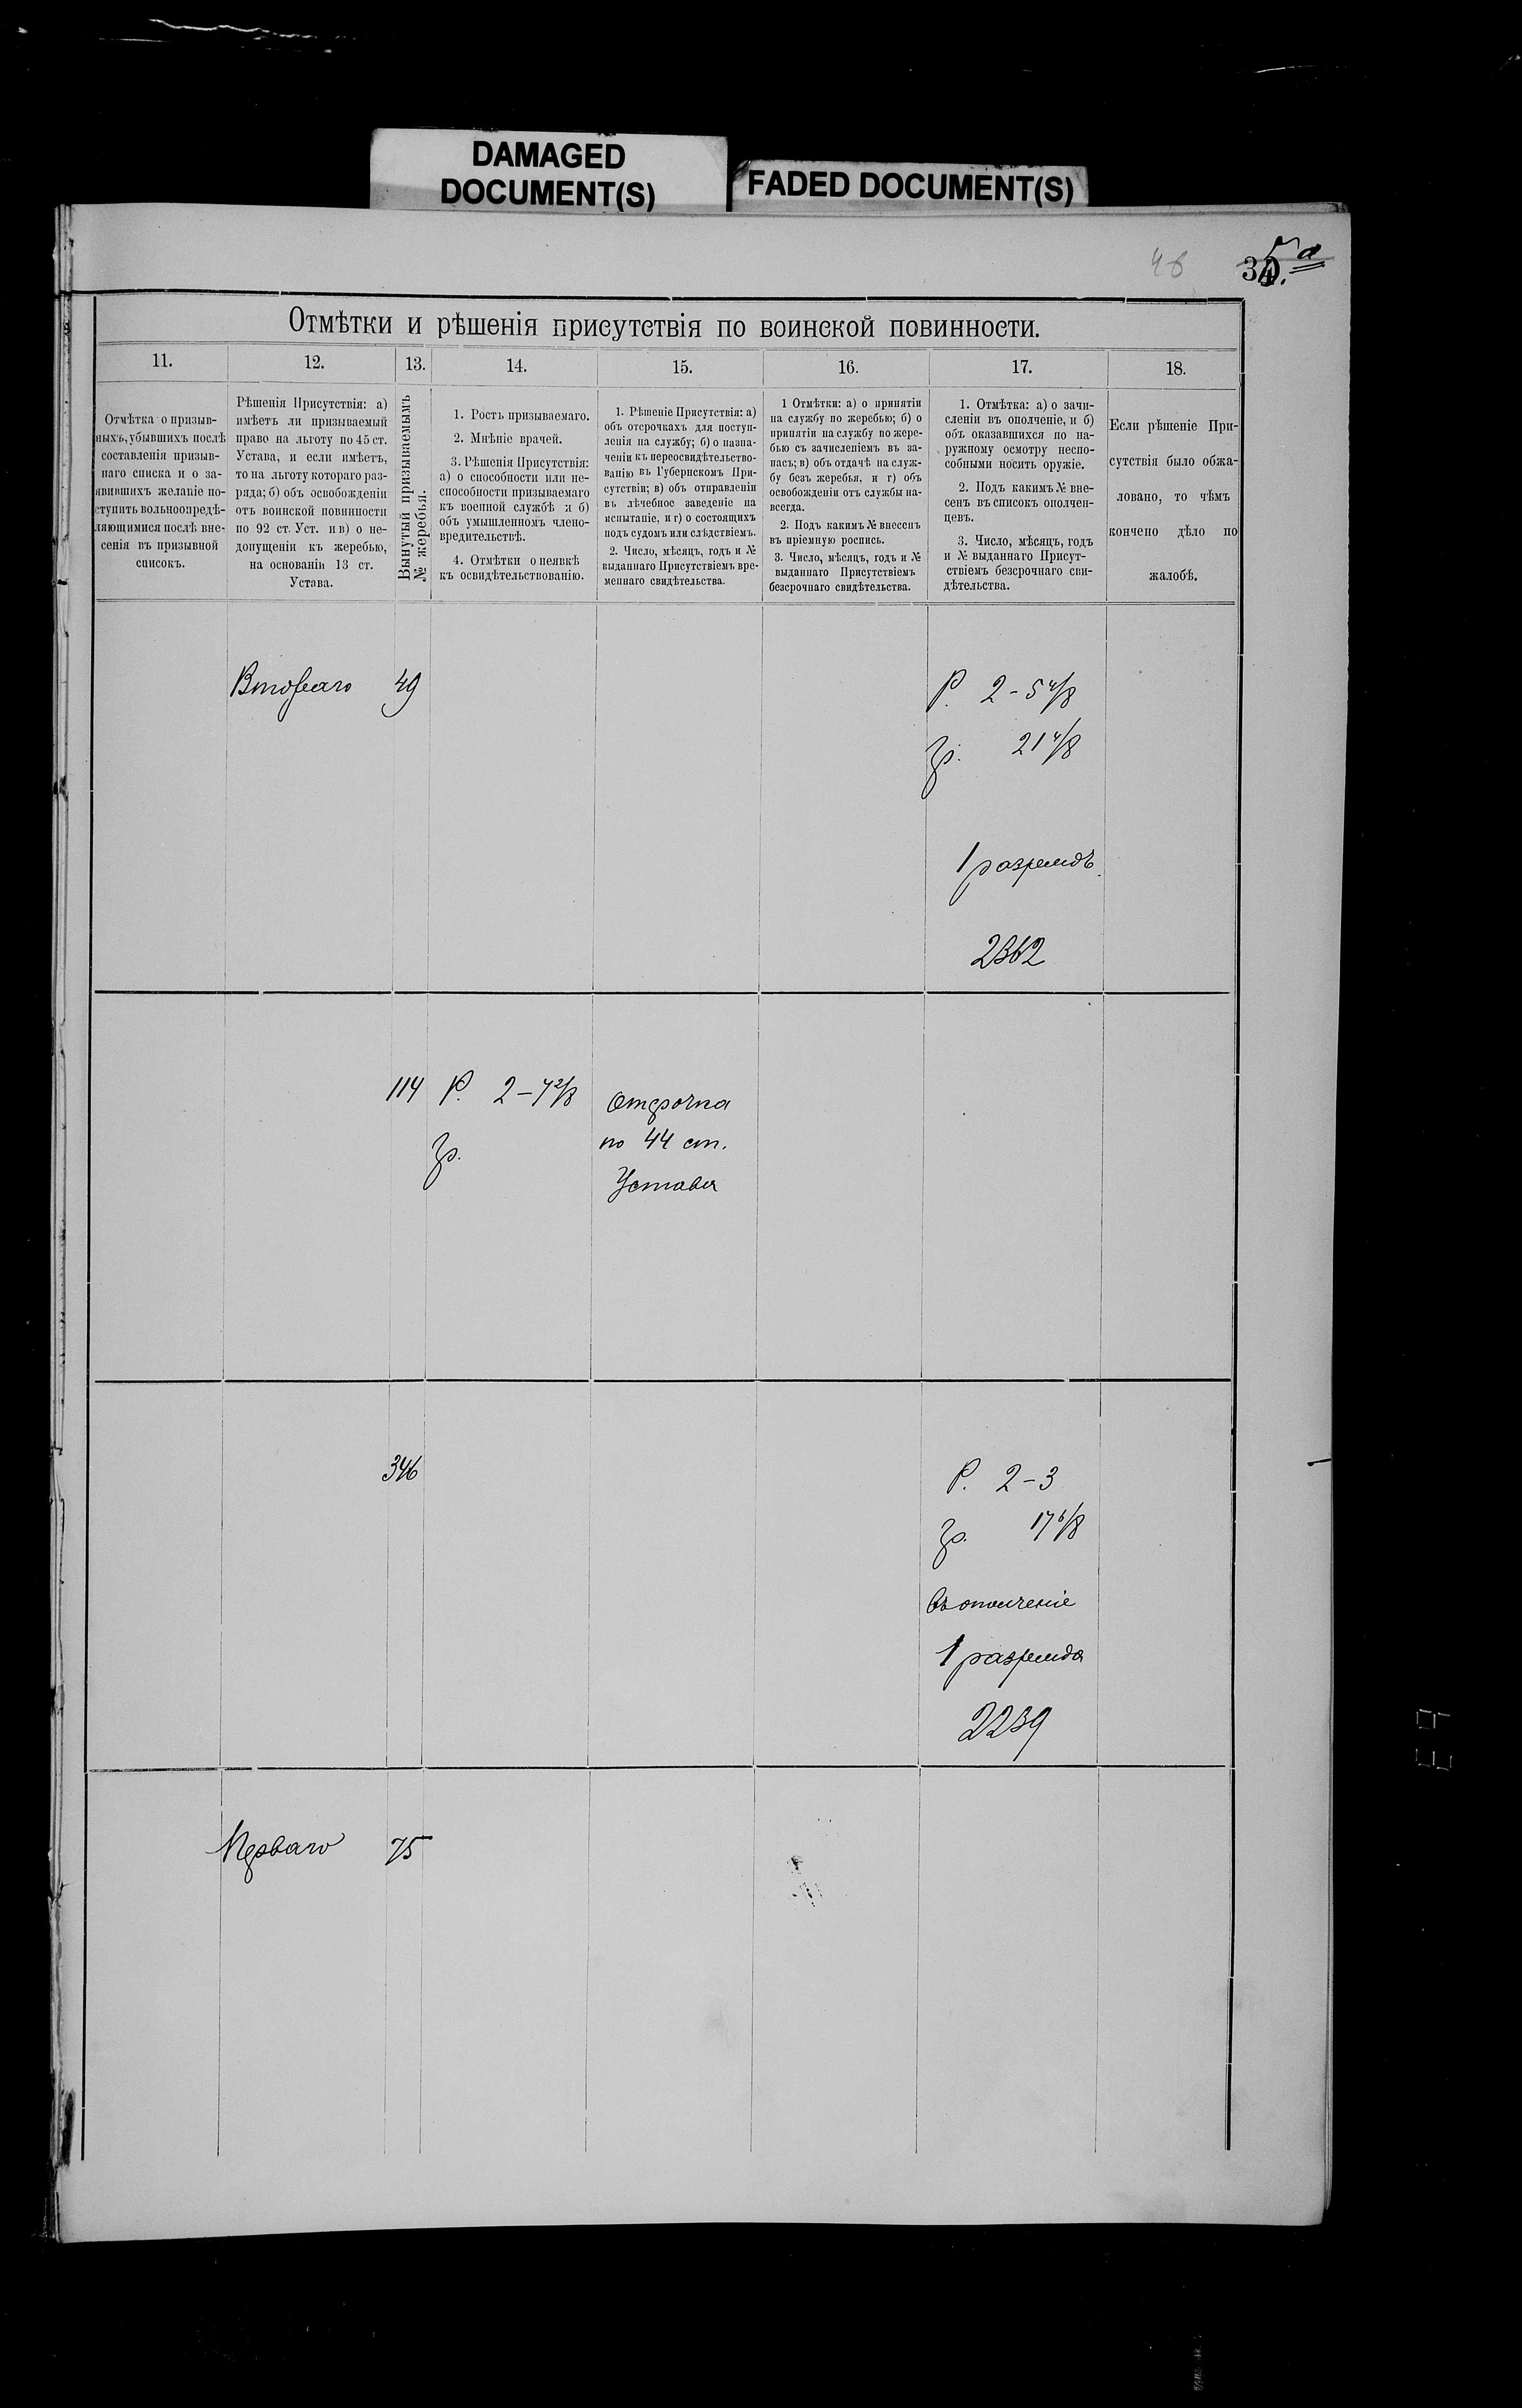 DAMAGED
DOCUMENT(S)
FADED DOCUMENT(S)
Отмѣтки и рѣшенія присутствія по воинской повинности.
11.
Отмѣтка о призыв-
ныхъ, убывшихъ послѣ
составленія призыв-
наго списка и о за-
явившихъ желаніе по-
ступить вольноопредѣ-
ляющимися послѣ вне-
сенія въ призывной
списокъ.
12.
Рѣшенія Присутствія: а)
имѣетъ ли призываемый
право на льготу по 45 ст.
Устава, и если имѣетъ,
то на льготу котораго раз-
ряда; б) объ освобожденіи
отъ воинской повинности
по 92 ст. Уст. и в) о не-
допущеніи къ жеребью,
на основаніи 13 ст.
Устава.
13.
Вынутый призываемымъ
№ жеребья.
14.
1. Ростъ призываемаго.
2. Мнѣніе врачей.
3. Рѣшенія Присутствія:
а) о способности или не-
способности призываемаго
къ военной службѣ и б)
объ умышленномъ члено-
вредительствѣ.
4. Отмѣтки о неявкѣ
къ освидѣтельствованію.
15.
1. Рѣшеніе Присутствія: а)
объ отсрочкахъ для поступ-
ленія на службу; б) о назна-
ченіи къ переосвидѣтельство-
ванію въ Губернскомъ При-
сутствіи; в) объ отправленіи
въ лѣчебное заведеніе на
испытаніе, и г) о состоящихъ
подъ судомъ или слѣдствіемъ.
2. Число, мѣсяцъ, годъ и №
выданнаго Присутствіемъ вре-
меннаго свидѣтельства.
16.
1 Отмѣтки: а) о принятіи
на службу по жеребью; б) о
принятіи на службу по жере-
бью съ зачисленіемъ въ за-
пасъ; в) объ отдачѣ на служ-
бу безъ жеребья, и г) объ
освобожденіи отъ службы на-
всегда.
2. Подъ какимъ № внесенъ
въ пріемную роспись.
3. Число, мѣсяцъ, годъ и №
выданнаго Присутствіемъ
безсрочнаго свидѣтельства.
17.
1. Отмѣтка: а) о зачи-
сленіи въ ополченіе, и б)
объ оказавшихся по на-
ружному осмотру неспо-
собными носить оружіе.
2. Подъ какимъ № вне-
сенъ въ списокъ ополчен-
цевъ.
3. Число, мѣсяцъ, годъ
и № выданнаго Присут-
ствіемъ безсрочнаго сви-
дѣтельства.
18.
Если рѣшеніе При-
сутствія было обжа-
ловано, то чѣмъ
кончено дѣло по
жалобѣ.
Втораго 49
Р. 2-5 4/8
гр. 21 4/8
1 разрядъ
2362
114 Р. 2-7 2/8
гр.
Отсрочка
по 44 ст.
Устава
346
Р. 2-3
гр. 17 6/8
въ ополченіе
1 разряда
2239
Перваго 75